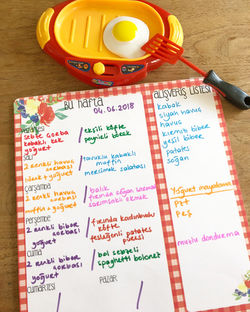 BU hafta
04.06.2018
sebze çorba
kabaklı kek
yoğurt
ekşili köfte
peynirli börek
salı
2 renkli havuç
çorbası
yoğurt
tavuklu kabaklı
muffin
mercimek salatası
çarşamba
2 renkli havuç
çorbası
muffin + yoğurt
balık
fırında soğan
sarımsaklı ekmek
perşembe
2 renkli biber
çorbası
yoğurt
fırında kadınbudu
köfte
fesleğenli patates
püresi
cuma
2 renkli biber
çorbası
yoğurt
bol sebzeli
spaghetti bolonez
cumartesi
pazar
ALIŞVERİŞ LİSTESİ
kabak
siyah havuç
havuç
kırmızı biber
yeşil biber
patates
soğan
Yoğurt mayalama